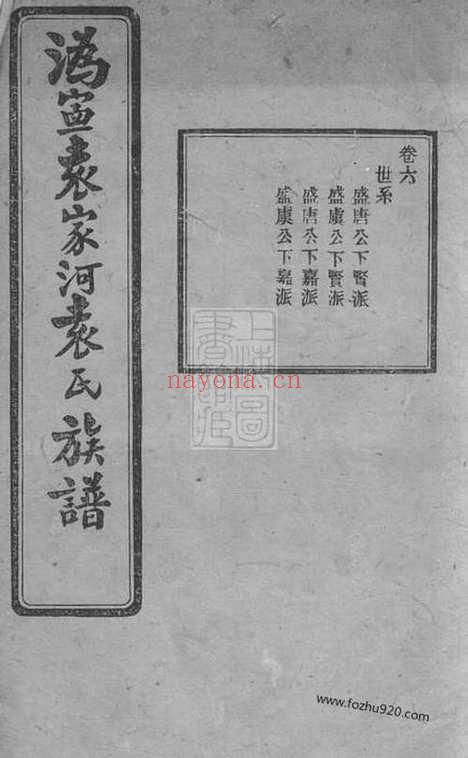 卷六
世系
盛唐公下賢派
盛虞公下賢派
盛唐公下嘉派
盛虞公下嘉派
溈寍袁家河袁氏族譜
上海圖書館藏
nayona.cn
www.fozhu920.com